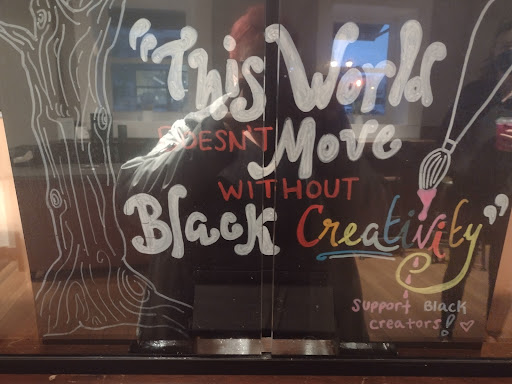 "This World
DOESN'T Move
WITHOUT
Black Creativity"
Support Black
creators! ♡